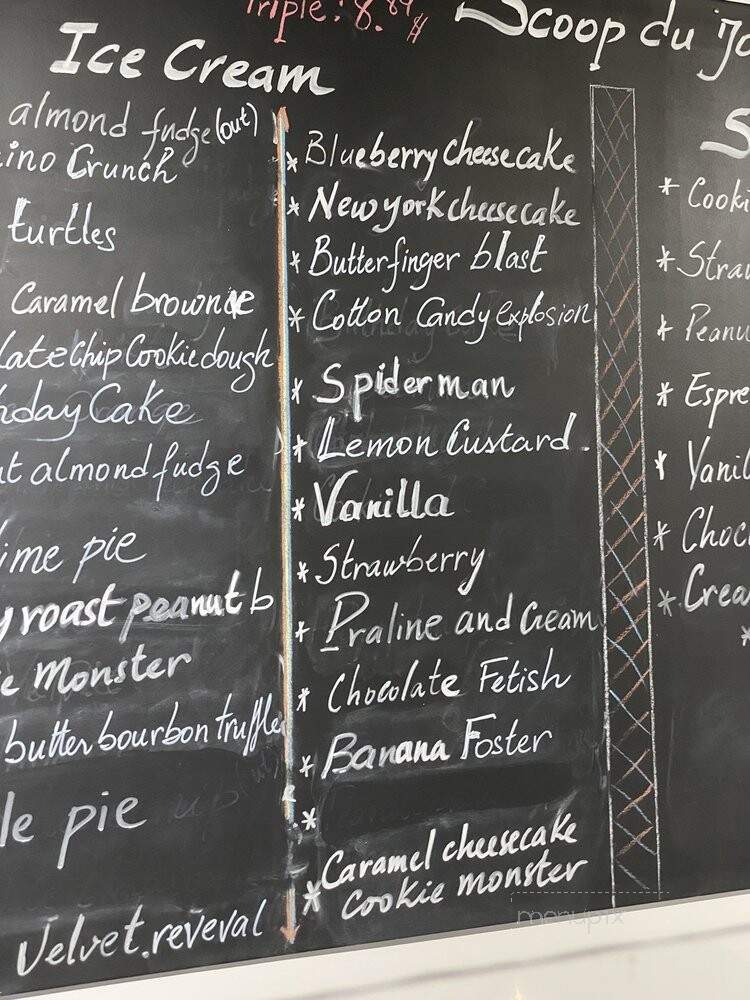 Triple: 8.89$
Scoop du Jo
Ice Cream
almond fudge (out)
ino Crunch
turtles
Caramel brownie
late Chip Cookie dough
hday Cake
ut almond fudge
ime pie
y roast peanut b
e Monster
butter bourbon truffle
le pie
Velvet.reveval
* Blueberry cheesecake
* New york cheesecake
* Butterfinger blast
* Cotton Candy Explosion
* Spiderman
* Lemon Custard.
* Vanilla
* Strawberry
* Praline and Cream
* Chocolate Fetish
* Banana Foster
*
* Caramel cheesecake
cookie monster
S
* Cooki
* Straw
* Peanu
* Espre
* Vanil
* Choc
* Crea
*
menupix